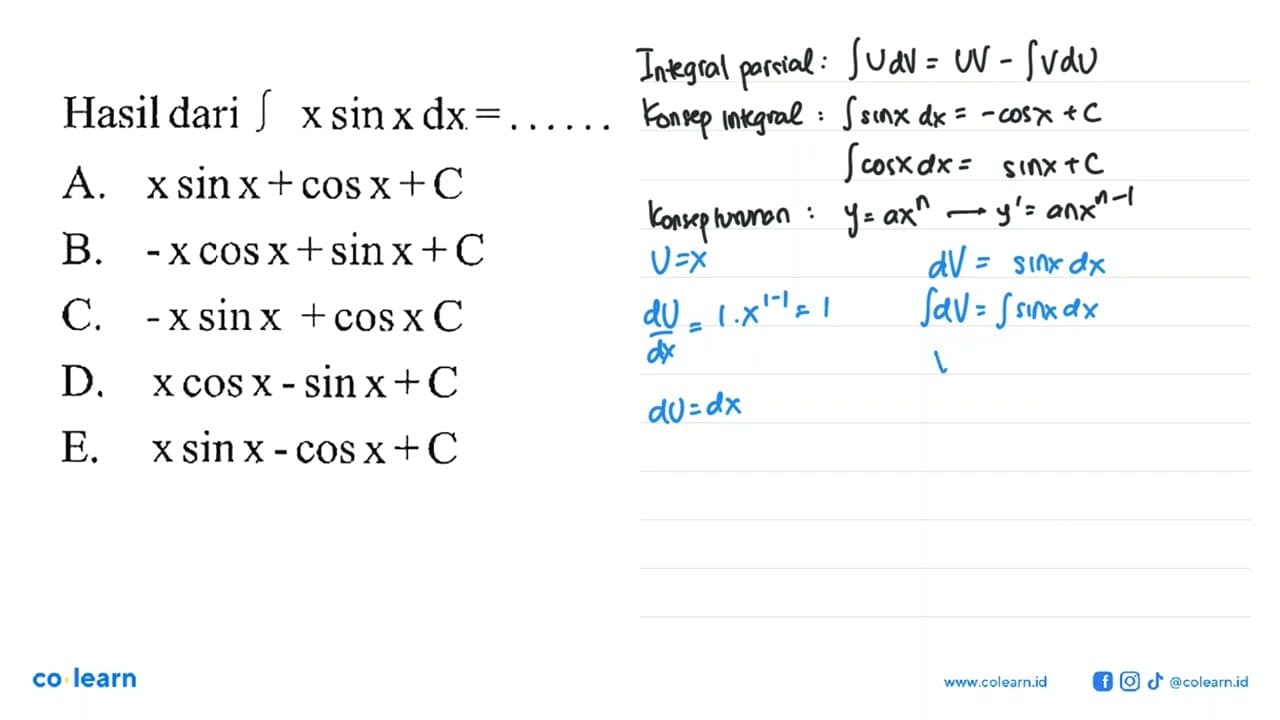 Hasil dari ∫ x sin x dx = . . . . . .
A. x sin x + cos x + C
B. - x cos x + sin x + C
C. - x sin x + cos x C
D. x cos x - sin x + C
E. x sin x - cos x + C
Integral parsial : ∫U dV = UV - ∫V dU
Konsep integral : ∫sinx dx = -cosx + C
∫cosx dx = sinx + C
Konsep turunan : y = axⁿ → y' = anxⁿ⁻¹
U = x
dU/dx = 1.x¹⁻¹ = 1
dU = dx
dV = sinx dx
∫dV = ∫sinx dx
co learn
www.colearn.id
@colearn.id